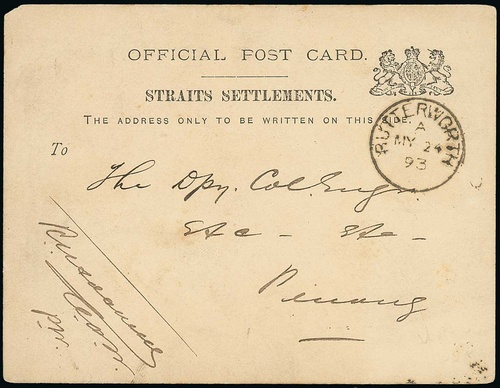 OFFICIAL POST CARD.
STRAITS SETTLEMENTS.
THE ADDRESS ONLY TO BE WRITTEN ON THIS SIDE.
BUTTERWORTH
A
MY 24
93
To
The Dpy. Col. Engr.
Etc - Etc -
Penang